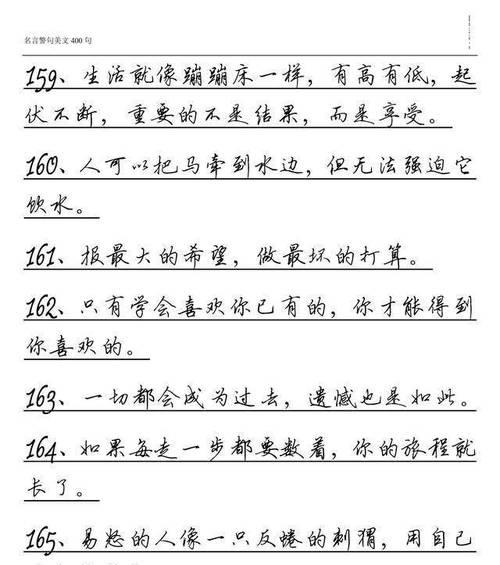 名言警句美文 400 句
159、生活就像蹦蹦床一样，有高有低，起
伏不断，重要的不是结果，而是享受。
160、人可以把马牵到水边，但无法强迫它
饮水。
161、报最大的希望，做最坏的打算。
162、只有学会喜欢你已有的，你才能得到
你喜欢的。
163、一切都会成为过去，遗憾也是如此。
164、如果每走一步都要数着，你的旅程就
长了。
165、易怒的人像一只反蜷的刺猬，用自己